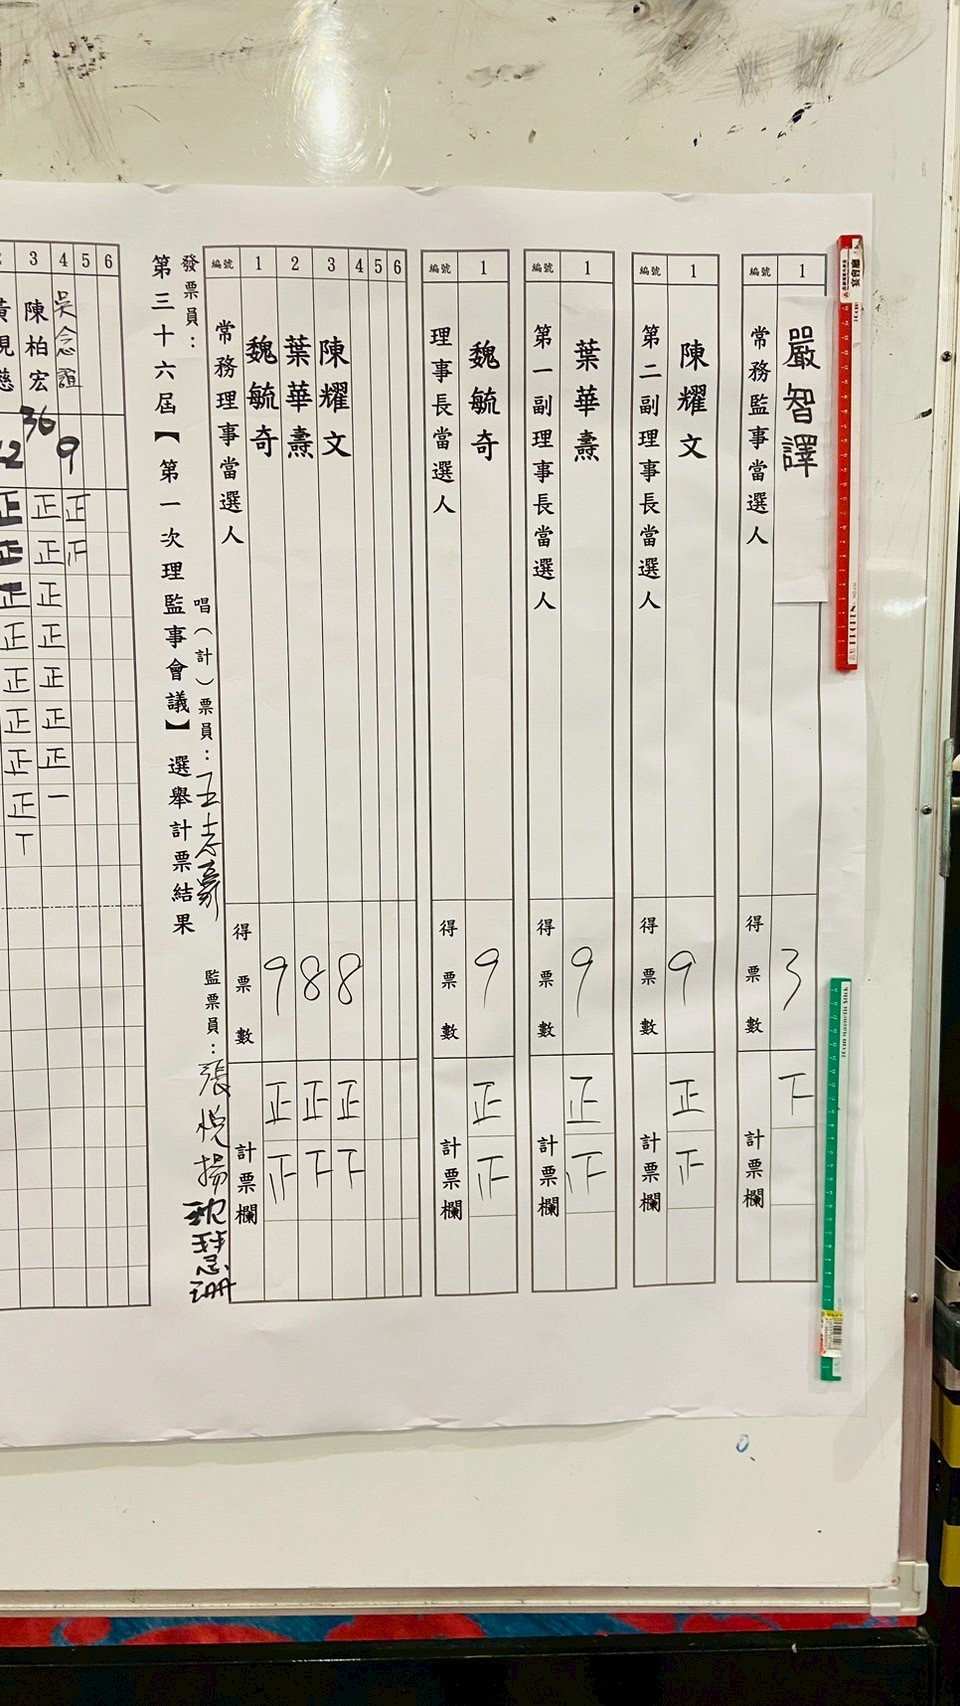 編號 1
嚴智譯
常務監事當選人
得票數 3
計票欄 下
編號 1
陳耀文
第二副理事長當選人
得票數 9
計票欄 正 正
編號 1
葉華燾
第一副理事長當選人
得票數 9
計票欄 正 正
編號 1
魏毓奇
理事長當選人
得票數 9
計票欄 正 正
編號 1 2 3 4 5 6
常務理事當選人
魏毓奇
葉華燾
陳耀文
得票數 9 8 8
計票欄 正 正 正
正 下 下
發票員：
唱（計）票員：王志豪
監票員：張悅揚
第三十六屆【第一次理監事會議】選舉計票結果
3 4 5 6
陳柏宏
吳念誼
36 9
正 正 正
正 正 正
正 正
正 正
正 正
正 正
正 正
正 一